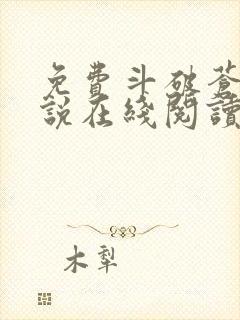 免費斗破蒼
說在綫閱讀
木犁